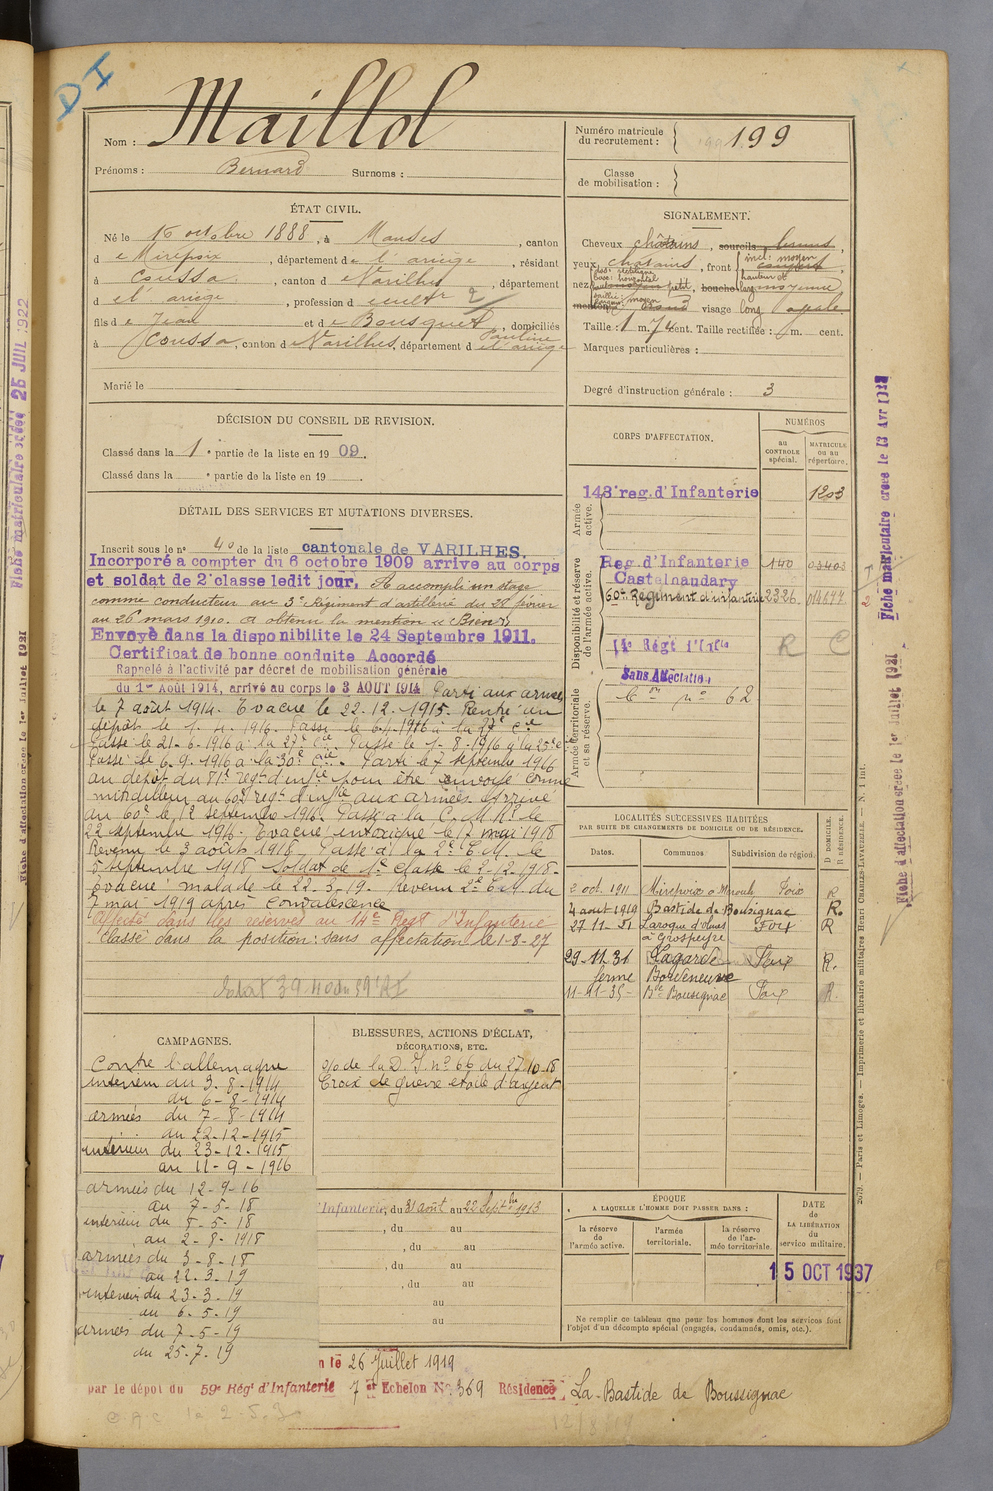 DI
Nom : Maillol
Prénoms : Bernard Surnoms :
Numéro matricule du recrutement : 199
Classe de mobilisation :
ÉTAT CIVIL.
Né le 16 octobre 1888, à Manses, canton
de Mirepoix, département de l'ariège, résidant
à Coussa, canton de Varilhes, département
d l'ariège, profession de cultr 2
fils de Jean et de Bousquet Pauline, domiciliés
à Coussa, canton de Varilhes, département de l'ariège
Marié le
SIGNALEMENT.
Cheveux châtains, sourcils bruns,
yeux châtains, front incl: moyen
hauteur et larg
nez dos: rectiligne
base: horizontal
petit, bouche moyenne
menton rond visage long ovale
Taille : 1 m. 76 cent. Taille rectifiée : m. cent.
Marques particulières :
Degré d'instruction générale : 3
DÉCISION DU CONSEIL DE REVISION.
Classé dans la 1e partie de la liste en 1909.
Classé dans la e partie de la liste en 19 .
DÉTAIL DES SERVICES ET MUTATIONS DIVERSES.
Inscrit sous le n° 40 de la liste cantonale de VARILHES.
Incorporé à compter du 6 octobre 1909 arrivé au corps
et soldat de 2e classe ledit jour. A accompli un stage
comme conducteur au 3e Régiment d'artillerie du 28 février
au 26 mars 1910. a obtenu la mention « Bien »
Envoyé dans la disponibilité le 24 Septembre 1911.
Certificat de bonne conduite Accordé
Rappelé à l'activité par décret de mobilisation générale
du 1er Août 1914, arrivé au corps le 3 AOUT 1914 Parti aux armées
le 7 août 1914. Evacué le 22.12.1915. Rentré au
dépôt le 1. 4. 1916. Passé le 6.4.1916 à la 27e Cie
Passé le 21-6-1916 à la 27e Cie. Passé le 1-8-1916 à la 25e Cie
Passé le 6.9.1916 à la 30e Cie. Parti le 7 septembre 1916
au dépôt du 81e regt d'infie pour être envoyé comme
mitrailleur au 60e regt d'infie aux armées. Arrivé
au 60e le 12 septembre 1916. Passé à la C.M.R. le
22 septembre 1916. Evacué intoxiqué le 7 mai 1918
Revenu le 3 août 1918. Passé à la 2e C.M. le
5 septembre 1918 Soldat de 1e classe le 2-12-1918.
Evacué malade le 22.3.19. Revenu 2e C.M. du
7 mai 1919 après convalescence
Affecté dans les réserves au 14e Regt d'Infanterie
Classé dans la position: sans affectation le 1-8-27
CORPS D'AFFECTATION.
NUMÉROS
au CONTROLE spécial.
MATRICULE ou au répertoire.
Armée active.
143e reg. d'Infanterie 1203
Disponibilité et réserve de l'armée active.
Reg. d'Infanterie 140
Castelnaudary
60e Régiment d'infanterie 2326 014677
14e Régt d'Infie R C
Armée territoriale et sa réserve.
Sans Affectation
C on n° 62
LOCALITÉS SUCCESSIVES HABITÉES
PAR SUITE DE CHANGEMENTS DE DOMICILE OU DE RÉSIDENCE.
Dates. Communes Subdivision de région. D DOMICILE. R RÉSIDENCE.
2 oct. 1911 Mirepoix Foix R
4 aout 1919 Bastide de Bousignac R.
27-11-21 Laroque d'Olmes Foix R
à Grospeyre
29-11.31 Lagarde Foix R.
ferme Bordeneuve
11-11-35- Bde Bousignac Foix R.
CAMPAGNES.
Contre l'allemagne
intérieur du 3.8-1914
au 6-8-1914
armées du 7-8-1914
au 22-12-1915
intérieur du 23-12-1915
au 11-9-1916
armées du 12-9-16
au 7-5-18
intérieur du 8-5-18
au 2-8-1918
armées du 3-8-18
au 22-3-19
intérieur du 23-3-19
au 6-5-19
armées du 7-5-19
au 25.7.19
BLESSURES, ACTIONS D'ÉCLAT,
DÉCORATIONS, ETC.
o/o de la D.I. n° 66 du 27.10.18
Croix de guerre étoile d'argent
Infanterie, du 31 août au 22 Septbre 1913
, du au
, du au
, du au
, du au
au
au
ÉPOQUE
A LAQUELLE L'HOMME DOIT PASSER DANS :
la réserve de l'armée active.
l'armée territoriale.
la réserve de l'armée territoriale
DATE de LA LIBÉRATION du service militaire.
15 OCT 1937
Ne remplir ce tableau que pour les hommes dont les services font
l'objet d'un décompte spécial (engagés, condamnés, omis, etc.).
n le 26 Juillet 1919
par le dépôt du 59e Régt d'Infanterie 7e Echelon No 369 Résidence La-Bastide de Boussignac
Fiche matriculaire créée 25 JUIL 1922
Fiche d'affectation créée le 1er Juillet 1931
Fiche matriculaire créée le 13 Avr
Fiche d'affectation créée le 1er Juillet 1931
2079. — Paris et Limoges. — Imprimerie et librairie militaires Henri CHARLES-LAVAUZELLE. — N. 1 int.